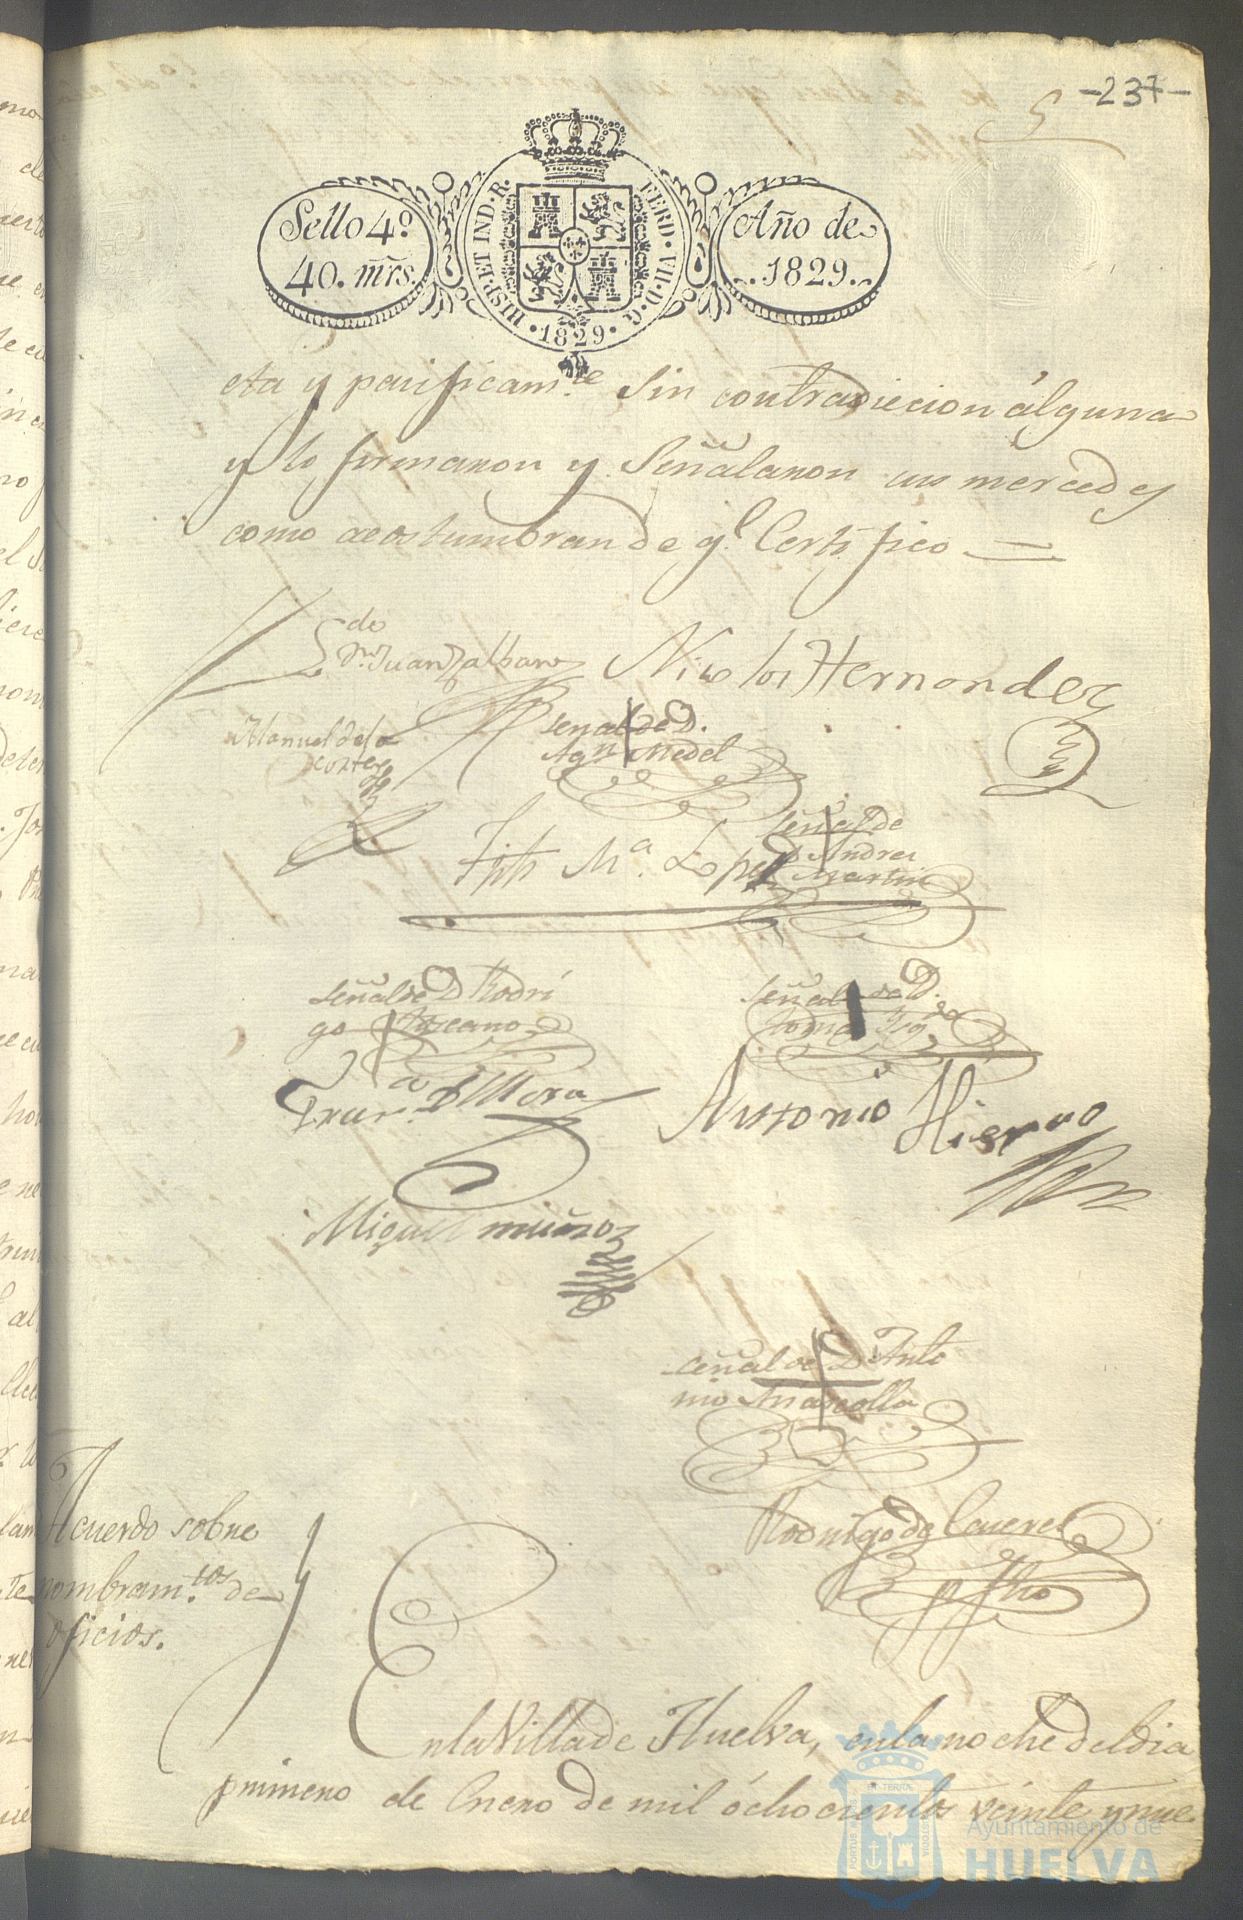 -237-
5
Sello 4.º
40. mrs.
HISP. ET IND. R.
FERD. VII. D. G.
1829
Año de
1829.
eta y pacificam.te sin contradiccion álguna
y lo firmaron y Señalaron sus mercedes
como acostumbran de q.e Certifico =
L.do
Dn. Juan Zalbaro
Nicolas Hernandez
Manuel de la
corte
señal de D.
Agn. Medel
señal de
D Andres
Martin
Ma. Lopez
señal de D Rodri
go Toscano
señal de D.
Toma
Franca. D Mora
Antonio Hierro
Miguel muñoz
señal de D Anto
nio
Rodrigo de
Acuerdo sobre
nombram.tos de
oficios.
En la Villa de Huelva, en la noche del dia
primero de Enero de mil óchocientos veinte y nue
PORTUS MARIS
ET TERRAE
CUSTODIA
Ayuntamiento de
HUELVA